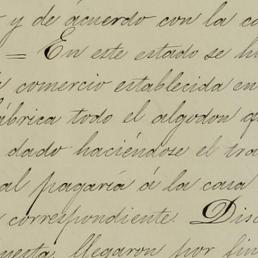 y de acuerdo con la co
= En este estado se h
comercio establecida en
fábrica todo el algodon q
dado haciéndose el tra
al pagaría á la casa
correspondiente. Dis
llegaron por fin